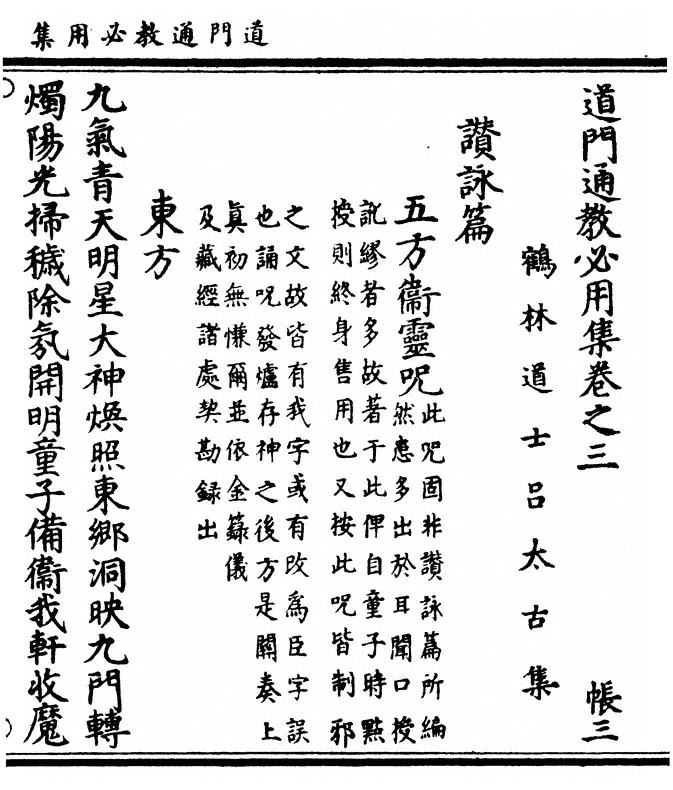 道門通教必用集
道門通教必用集卷之三
帳三
鶴林道士呂太古集
讚詠篇
五方衞靈呪
此呪固非讚詠篇所編
然悫多出於耳聞口授
訛繆者多故著于此俾自童子時㸃
授則終身售用也又按此呪皆制邪
之文故皆有我字或有改爲臣字誤
也誦呪發爐存神之後方是關奏上
眞初無慊爾並依金籙儀
及藏經諸處契勘録出
東方
九氣青天明星大神煥照東鄉洞映九門轉
燭陽光掃穢除氛開明童子備衞我軒收魔